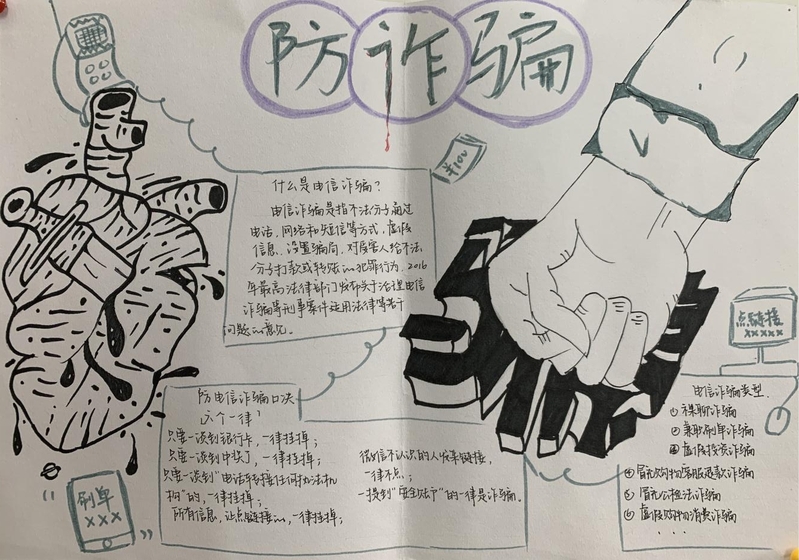 防诈骗
¥100
什么是电信诈骗?
电信诈骗是指不法分子通过
电话,网络和短信等方式,虚假
信息,设置骗局,对受害人给不法
分子打款或转账的犯罪行为,2016
年最高法律部门发布关于治理电信
诈骗等刑事案件适用法律等若干
问题的意见。
点链接
×××××
防电信诈骗口决
六个一律:
只要一谈到银行卡,一律挂掉;
只要一谈到中奖了,一律挂掉;
只要一谈到"电话转接任何执法机
构"的,一律挂掉;
所有信息,让点链接的,一律挂掉;
微信不认识的人发来链接,
一律不点;
一提到"安全账户"的一律是诈骗。
电信诈骗类型
① 裸聊诈骗
② 兼职刷单诈骗
③ 虚假投资诈骗
④ 冒充购物客服退款诈骗
⑤ 冒充公检法诈骗
⑥ 虚假购物消费诈骗
....
"刷单
×××"